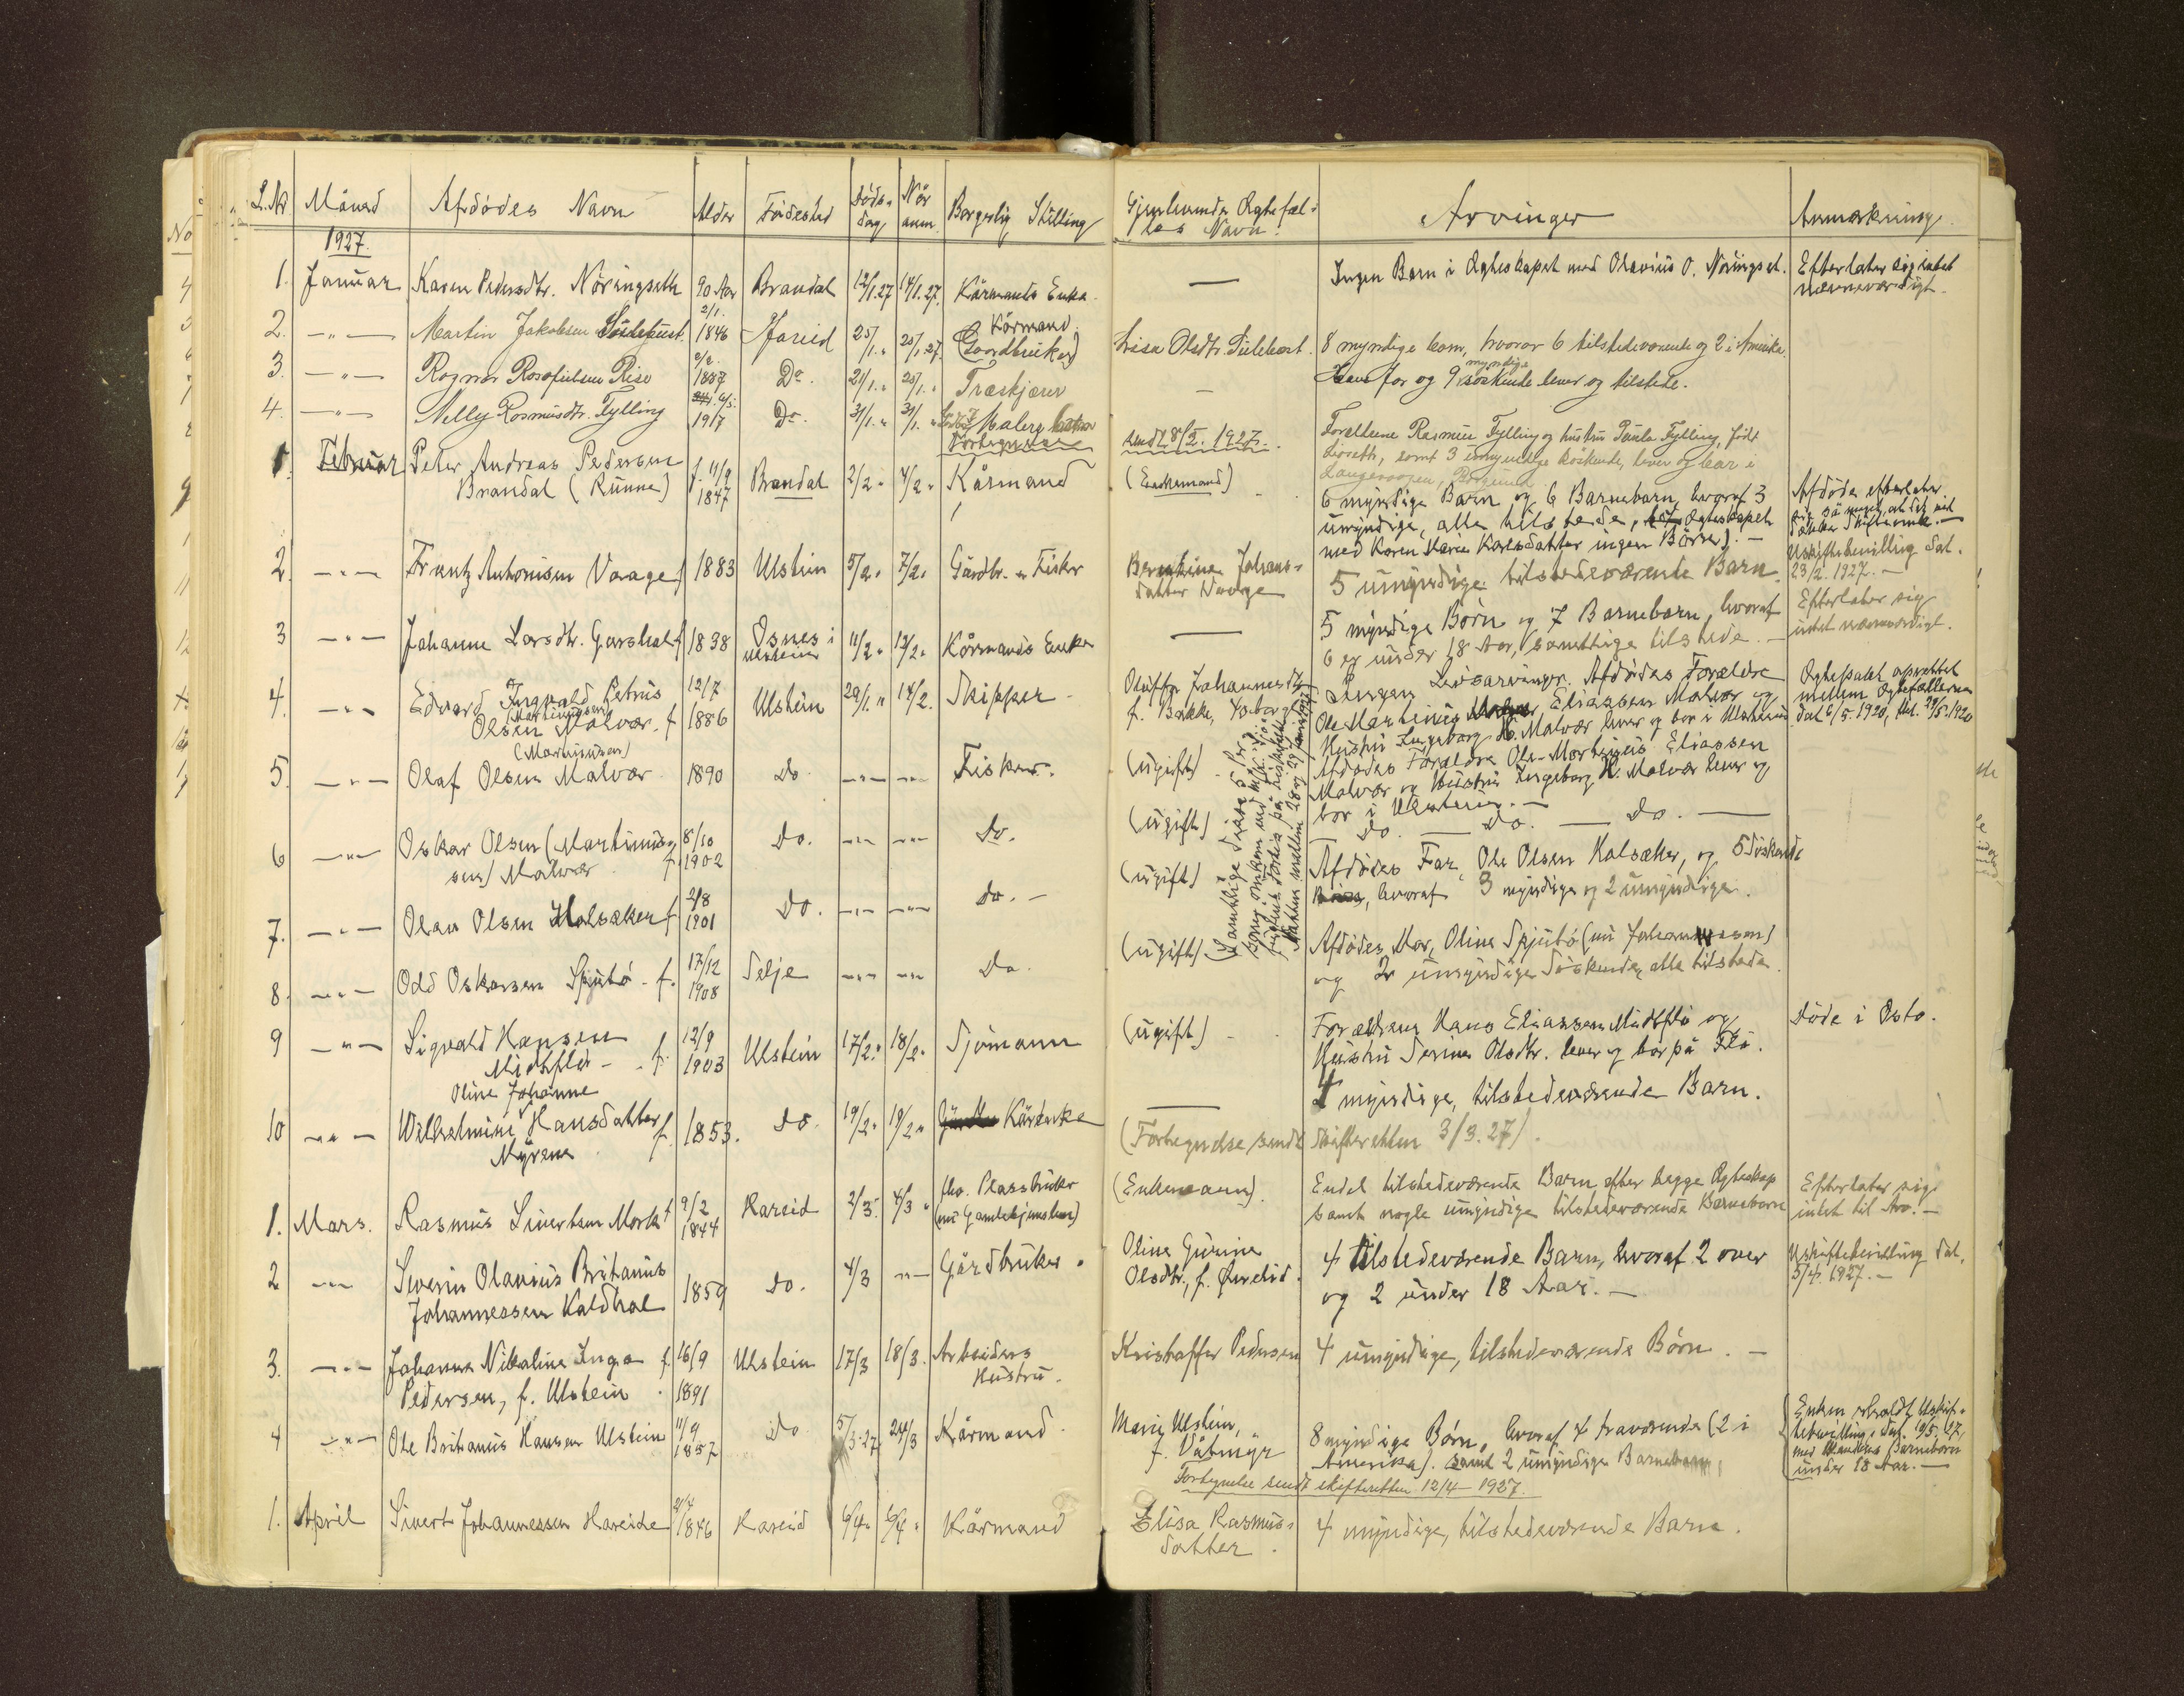 L.Nr Måned Afdødes Navn Alder Fødested Døds- dag Når anm. Borgerlig Stilling Gjenlevende Ægtefæl- les Navn. Arvinger Anmærkninger
1927.
1. Januar Karen Pedersdtr. Nöringseth 90 Aar Brandal 12/1.27 14/1.27. Kårmands Enke. — Ingen Barn i Ægteskapet med Olavius O. Nöringset. Efterlater sig intet
nævneværdigt.
2. —"— Martin Jakobsen 2/1. 1846 Hareid 25/1." 25/1.27. Kårmand.
(Gaardbruker) Lisa Olsdtr. 8 myndige barn, hvorav 6 tilstedeværende og 2 i Amerika.
3. —"— Ragnar Rasmus Riise 2/2. 1887 Do. 21/1." 25/1." Træskjærer — far og 9 myndige söskende lever og tilstede.
4. —"— Nelly Rasmusdtr. Fylling 1917 Do. 31/1." 31/1." Maler
Fortegnelse sendt 8/2. 1927. Forældrene Rasmus Fylling og hustru Paula Fylling, født
samt 3 umyndige söskende, lever og bor i
1. Februar Peter Andreas Pedersen
Brandal (Runne) f. 11/9 1847 Brandal 2/2." 4/2." Kårmand (Enkemand) 6 myndige Barn og 6 Barnebarn, hvoraf 3
umyndige, alle tilstede, Ægteskapet
med Karen Marie Karlsdatter ingen Börn). — Afdøde efterlater
sig så meget, at det vil
2. —"— Frantz Antonisen Vaage f. 1883 Ulstein 5/2." 7/2." Gårdbr. og Fisker Berntine Johans-
datter Vaage 5 umyndige tilstedeværende Barn. Uskiftebevilling dat.
23/2. 1927. —
3 —"— Johanne Larsdtr. Garshol f. 1838 Osnes i
Ulstein 11/2." 12/2." Kårmands Enke — 5 myndige Börn og 7 Barnebarn, hvoraf
6 er under 18 Aar, samtlige tilstede. — Efterlater sig
intet nævneværdigt.
4. —"— Edvard Ingvald Petrus
(Martinussen)
Olsen Malvær. f. 12/7 1886 Ulstein 29/1." 14/2. Skipper Johannesdtr.
f. Bakke, Ingen Livsarvinger. Afdødes Forældre
Ole Martinus Eliassen Malvær og
Hustru Ingeborg H. Malvær lever og bor i Ulstein. Ægtepakt oprettet
mellem Ægtefællerne
dat. 6/5. 1920,
5. —"— (Martinussen)
Olaf Olsen Malvær 1890 Do. —"— —"— Fisker. (ugift) Afdødes Forældre Ole Martinus Eliassen
Malvær og Hustru Ingeborg H. Malvær lever og
bor i Ulstein. —
6 —"— Oskar Olsen (Martinus-
sen) Malvær f. 8/10 1902 Do. —"— —"— Do. (ugift) Do. — Do. — Do. —
7. —"— Olav Olsen Holsæker f. 2/8 1901 Do. —"— —"— Do. — (ugift) Afdødes Far, Ole Olsen Holsæker, og 5 söskende
, hvoraf 3 myndige og 2 umyndige.
Samtlige disse 5 per-
soner omkom
natten mellem 28 og 29 januar 1927)
8. —"— Odd Oskarsen Spjutö f. 17/12 1908 Selje —"— —"— Do. (ugift) Afdødes Mor, Oline Spjutö (nu Johannessen)
og 2 umyndige Söskende, alle tilstede.
9 —"— Sigvald Hansen
Midtflø f. 12/9 1903 Ulstein 17/2." 18/2." Sjömann (ugift) Forældrene Hans Eliassen Midtflö og
Hustru Serine Olsdtr. lever og bor på Flö. Døde i Oslo.
10 —"— Oline Johanne
Wilhelmine Hansdatter
Myrene f. 1853. Do. 19/2." 19/2." Kårenke — 4 myndige, tilstedeværende Barn.
(Fortegnelse sendt Skifteretten 3/3. 27).
1. Mars. Rasmus Sivertsen Mork f. 9/2 1844 Hareid 2/3. 4/3 " fhv. Plassbruker
(nu Gamlehjemslem) (Enkemann). Endel tilstedeværende Barn efter begge Ægteskap
samt nogle umyndige tilstedeværende Barnebarn Efterlater sig
intet til Arv. —
2 —"— Severin Olavius Britanus
Johannessen Kaldhol 1859 Do. 4/3 —"— Gårdbruker. Oline Gurine
Olsdtr., f. Overlid. 4 tilstedeværende Barn, hvoraf 2 over
og 2 under 18 Aar. — Uskiftebevilling dat.
5/4. 1927. —
3. —"— Johanna Nikoline Inga
Pedersen, f. Ulstein. f. 16/9 1891 Ulstein 17/3 18/3. Arbeiders
Hustru. Kristoffer Pedersen 4 umyndige, tilstedeværende Börn. —
4 —"— Ole Britanus Hansen Ulstein 11/9 1857 Do. 5/3.27. 24/3 Kårmand Marie Ulstein,
f. Våtmyr 8 myndige Börn, hvoraf 4 fraværende (2 i
Amerika). samt 2 umyndige Barnebarn.
Fortegnelse sendt skifteretten 12/4 - 1927. Enken erholdt Uskifte-
bevilling, dat. 10/5. 27,
med Mandens Barnebarn
under 18 Aar. —
1. April Sivert Johannessen Hareide 21/7 1846 Hareid 6/4." 6/4." Kårmand Elisa Rasmus-
datter. 4 myndige, tilstedeværende Barn.